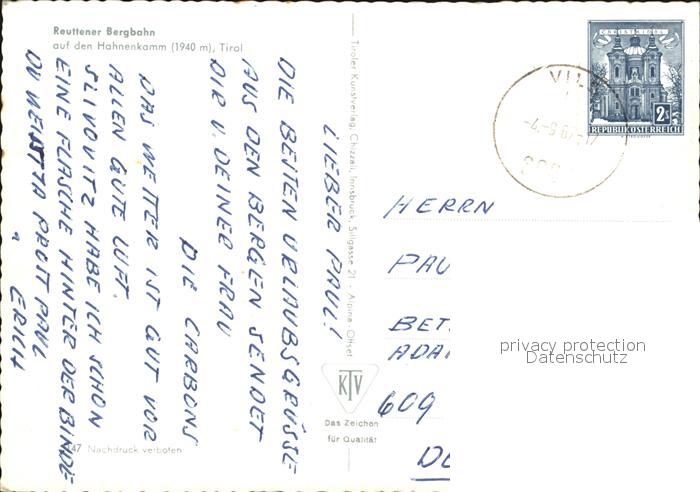 Reuttener Bergbahn
auf den Hahnenkamm (1940 m), Tirol
LIEBER PAUL!
DIE BESTEN URLAUBSGRÜSSE
AUS DEN BERGEN SENDET
DIR U. DEINER FRAU
DIE CARBONS
DAS WETTER IST GUT VOR
ALLEN GUTE LUFT.
SLIVOVITZ HABE ICH SCHON
EINE FLASCHE HINTER DER BINDE
DU WEISST JA PROST PAUL
ERICH
47 Nachdruck verboten
Tiroler Kunstverlag, Chizzali, Innsbruck, Sillgasse 21 - Alpina-Offset
KTV
Das Zeichen
für Qualität
CHRISTKINDL
2 S
REPUBLIK ÖSTERREICH
VIL
HERRN
PAU
BET
ADA
609
privacy protection
Datenschutz